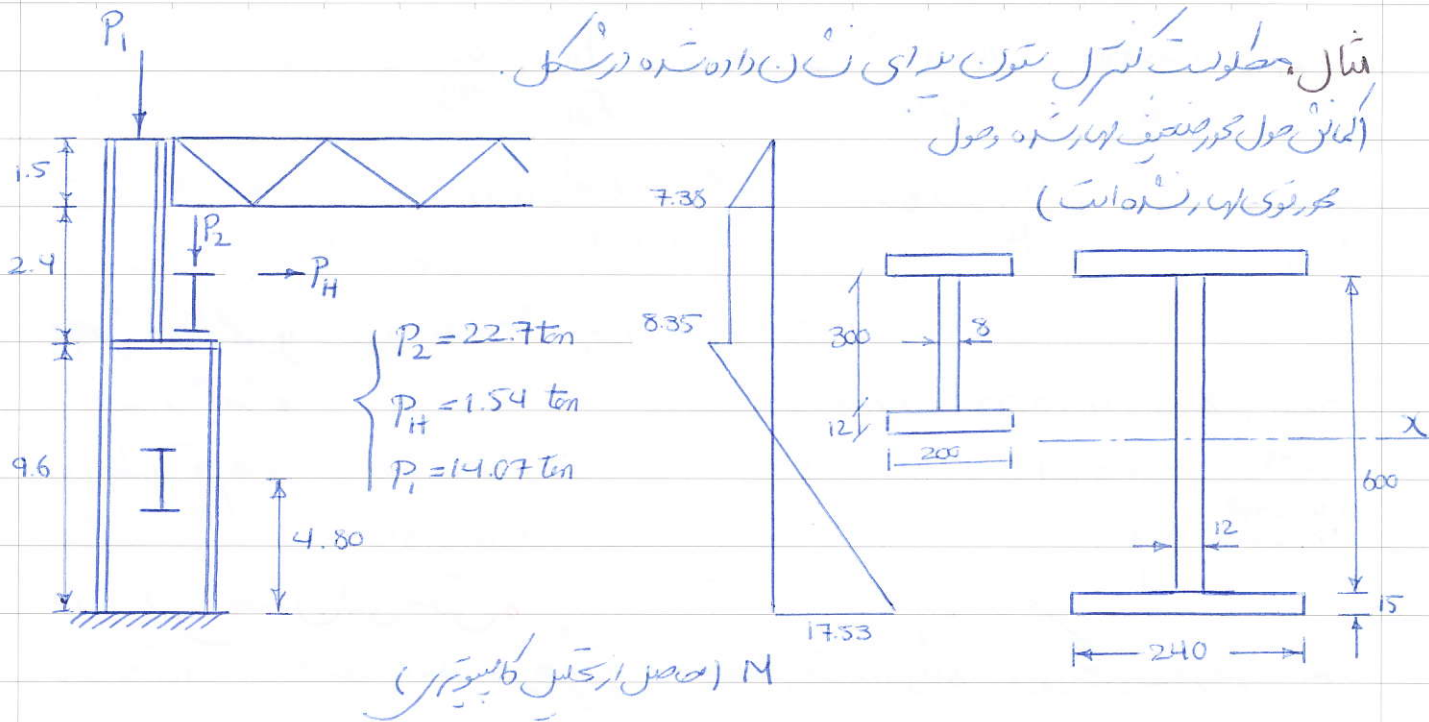 مثال. مطلوبست کنترل ستون پله ای نشان داده شده در شکل.
(کمانش حول محور ضعیف مهار شده و حول
محور قوی مهار نشده است)
P₁
1.5
2.4
9.6
P₂
P_H
P₂ = 22.7 ton
P_H = 1.54 ton
P₁ = 14.07 ton
4.80
7.38
8.35
17.53
M (حاصل از تحلیل کامپیوتری)
300
8
12
200
X
600
12
15
240